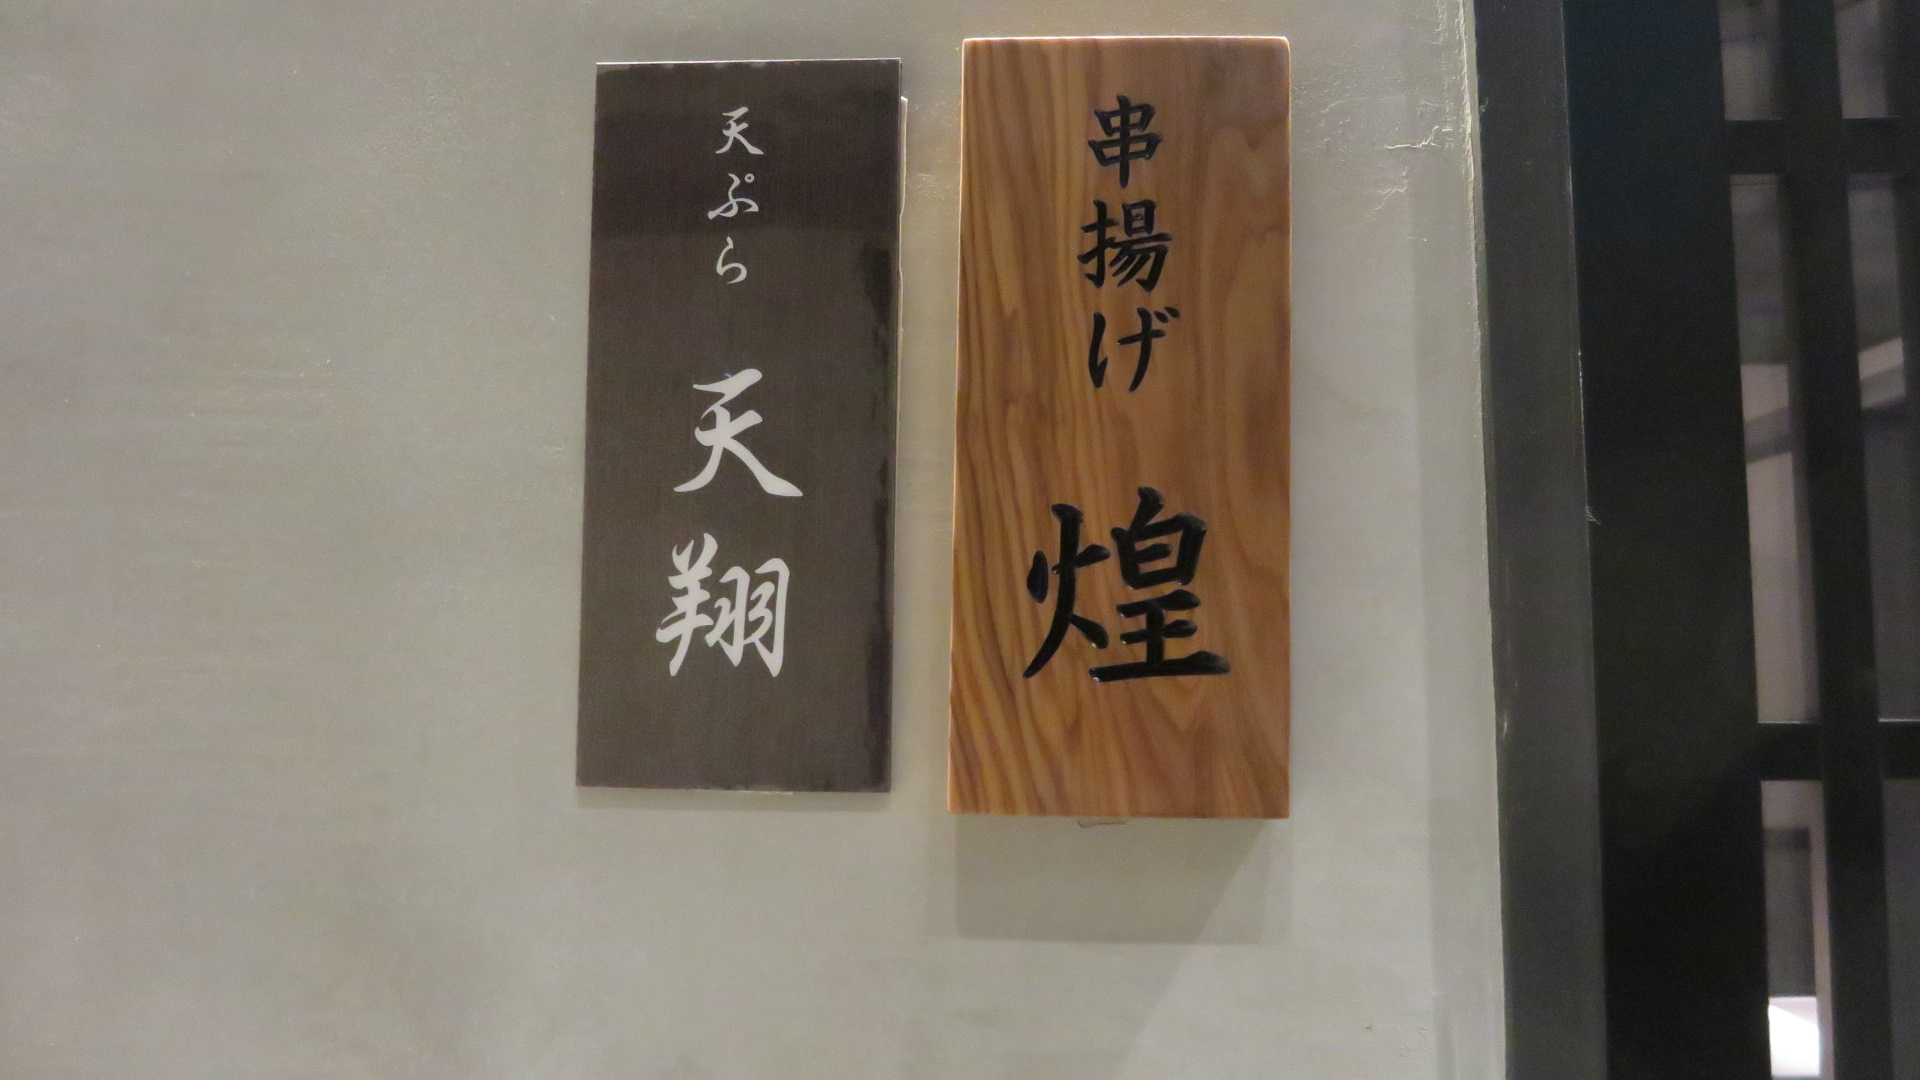 串揚げ
煌
天ぷら
天翔